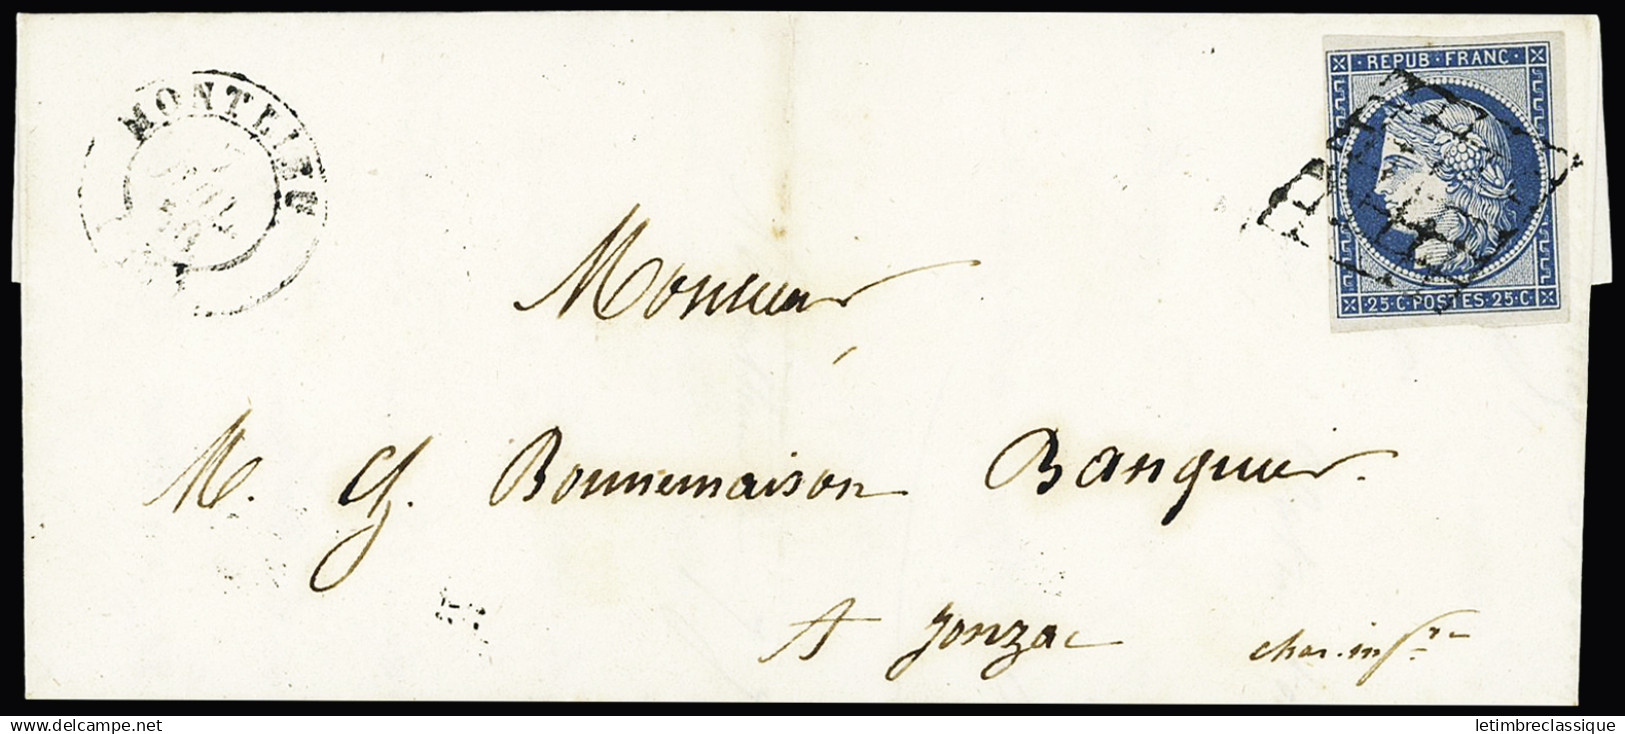 MONTLIEU
· REPUB · FRANC ·
25 · C · POSTES · 25 · C
Monsieur
M. Ch. Bonnemaison Banquier.
A Jonzac
char. infre
www.delcampe.net
letimbreclassique